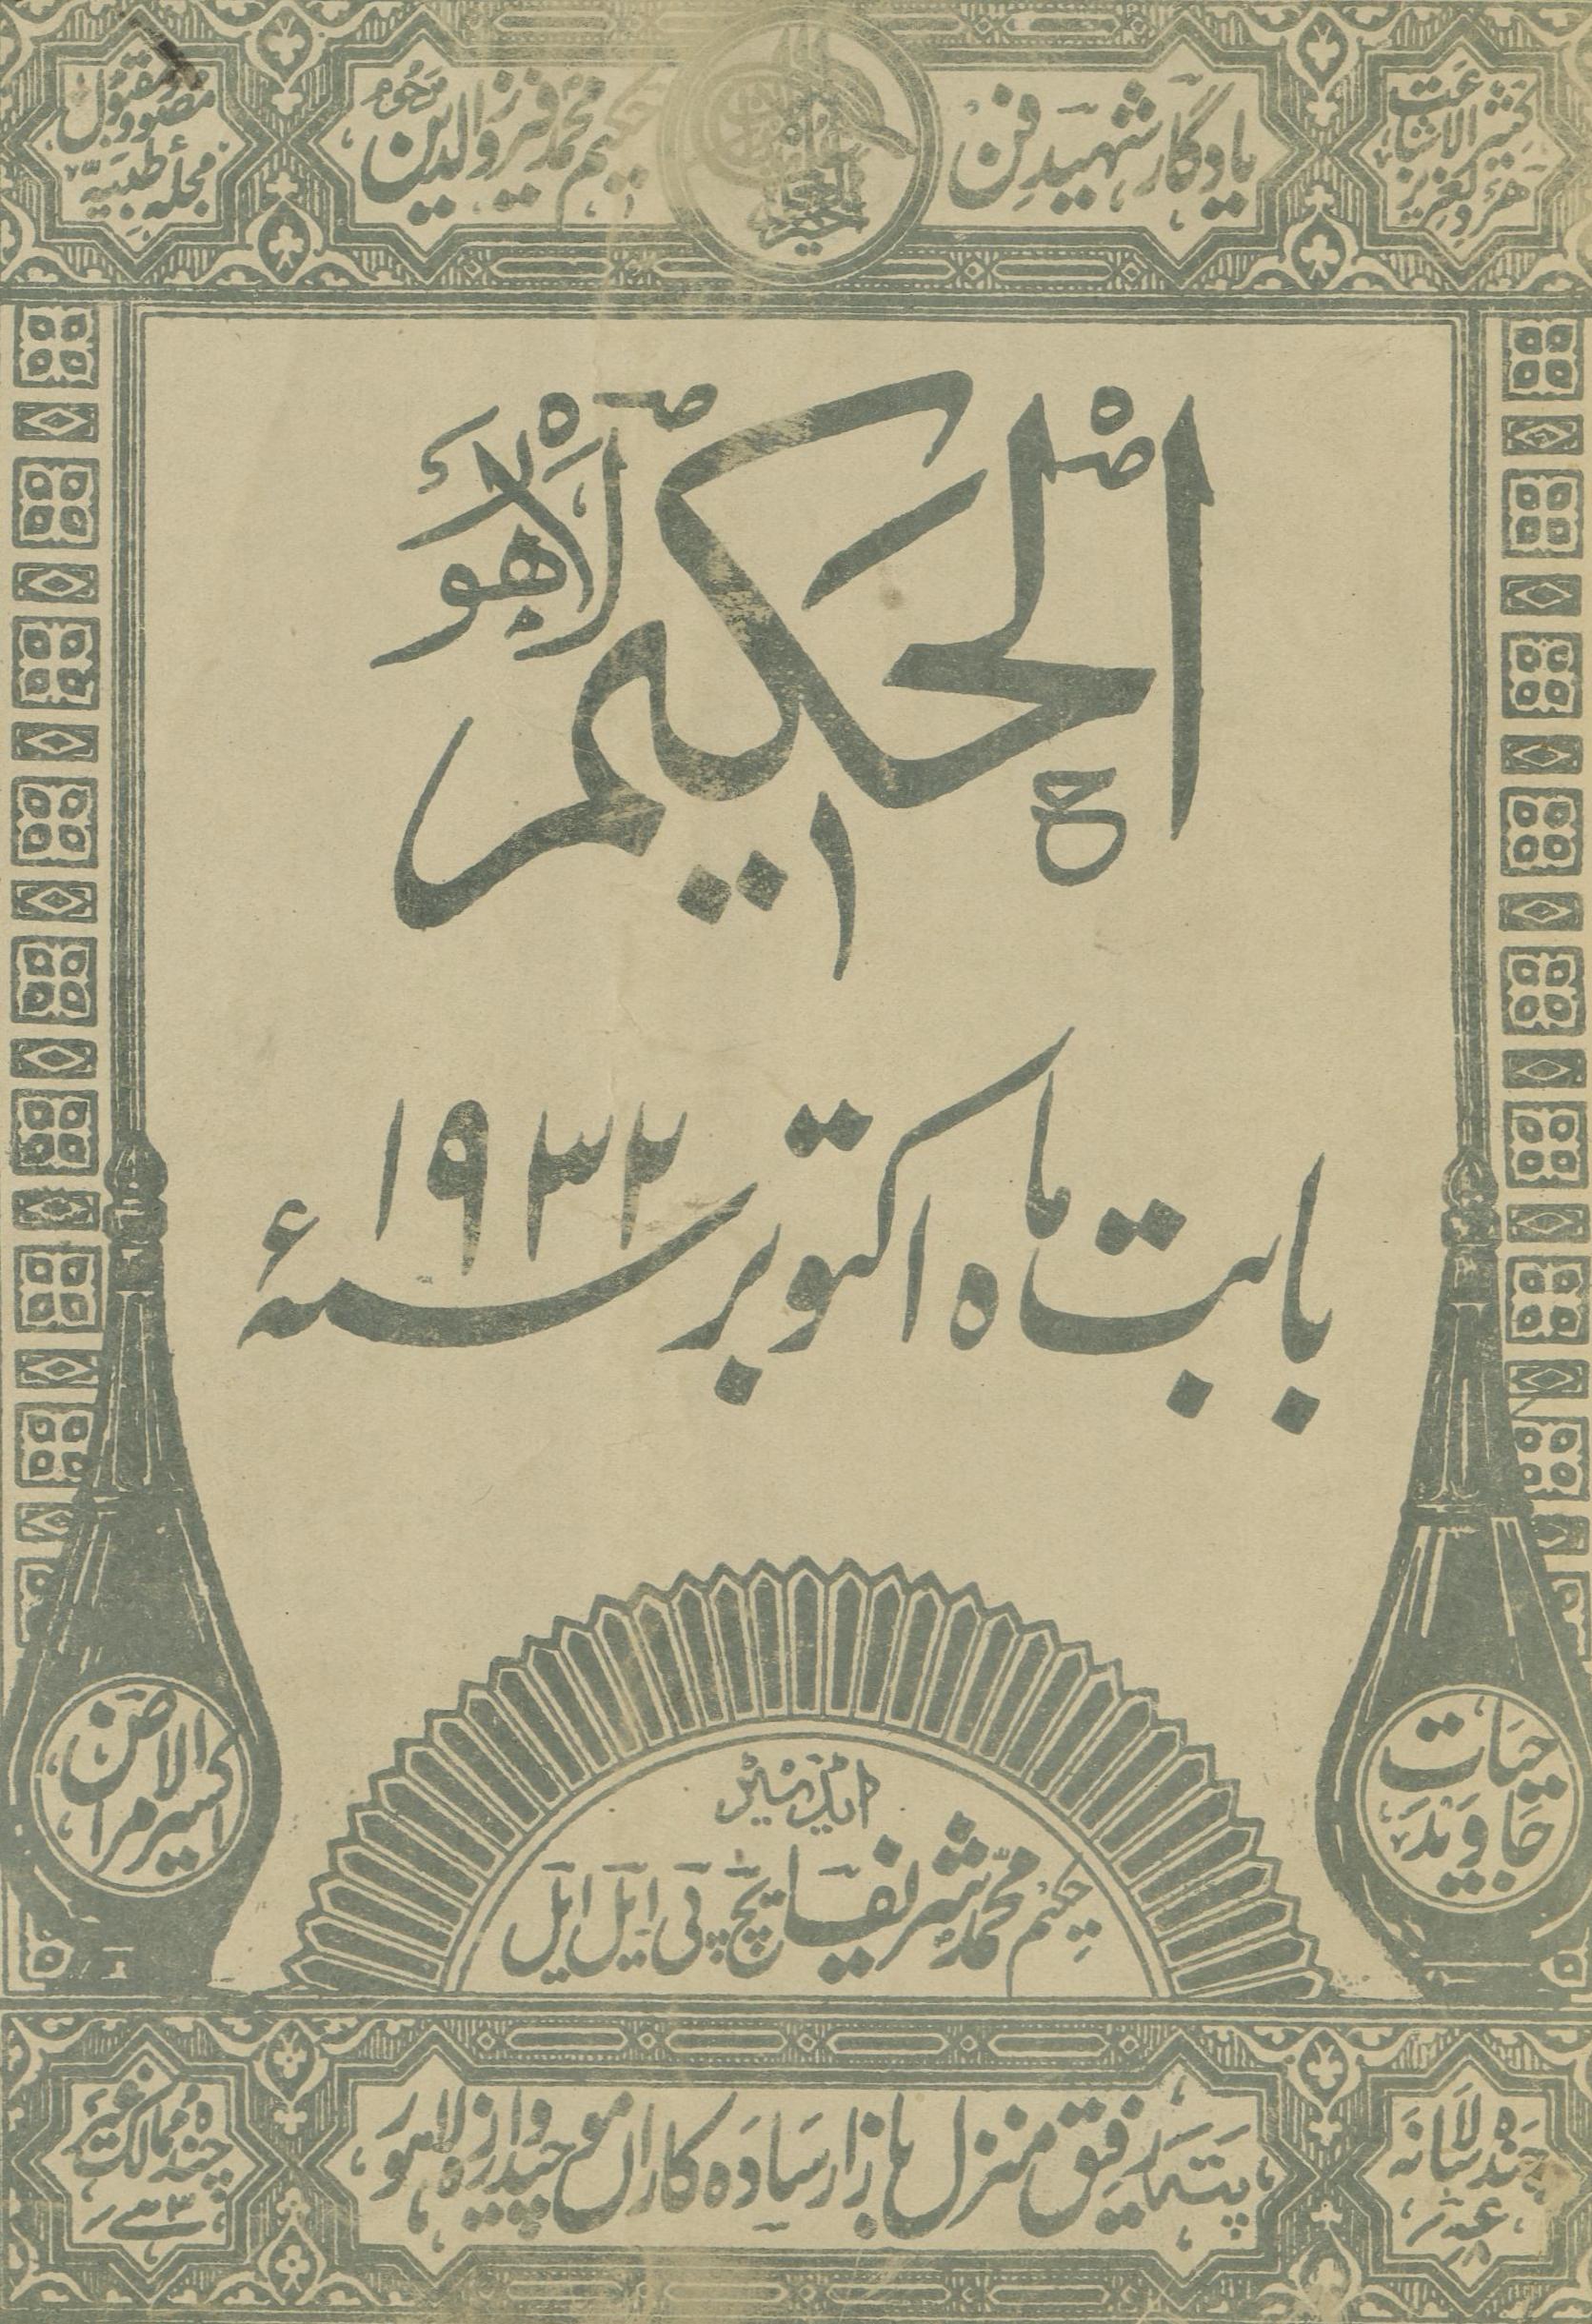 کثیر الاشاعت
ہر دلعزیز
یادگار شہید فن
حکیم محمد فیروز الدین مرحوم
مصور و مقبول
مجلہ طبیہ
الحکیم
لاہور
بابت ماہ اکتوبر سنہ ۱۹۳۲ء
حیات
جاوید
اکسیر الامراض
ایڈیٹر
حکیم محمد شریف ایچ پی ایل ایل
چندہ سالانہ
پتہ رفیق منزل بازار سادہ کاراں موچیدروازہ لاہور
چندہ ممالک غیر